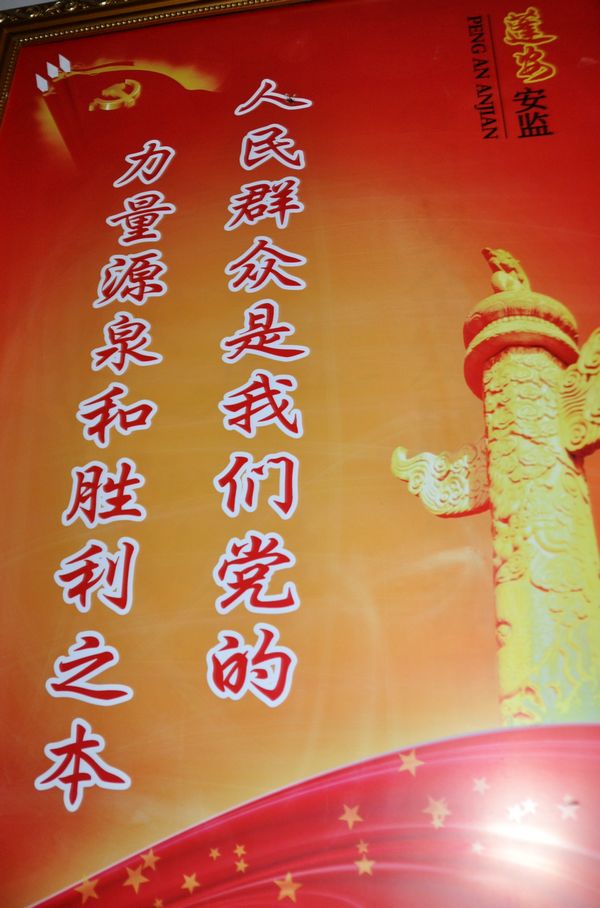 人民群众是我们党的
力量源泉和胜利之本
蓬安
安监
PENG AN ANJIAN